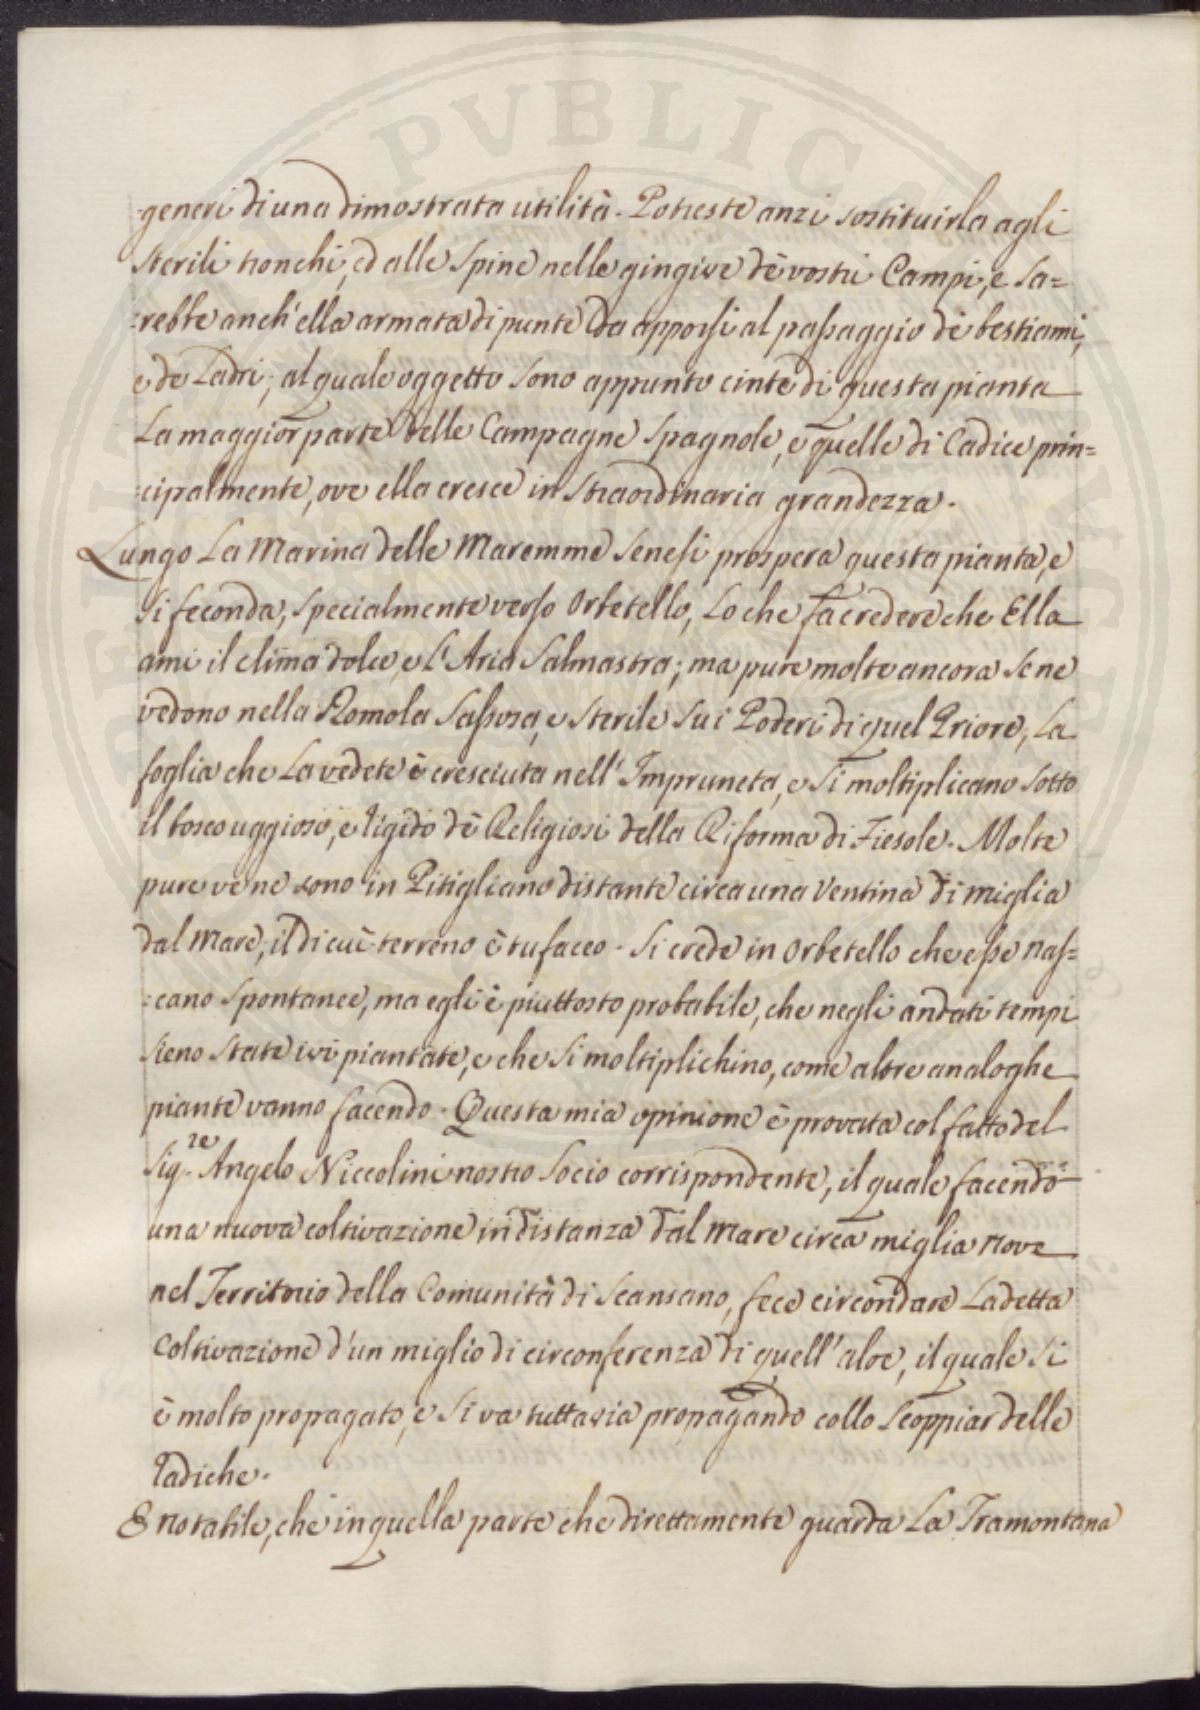 PVBLICAE
generi di una dimostrata utilità. Potreste anzi sostituirla agli
sterili tronchi, ed alle spine nelle gingive dè vostri Campi, e sa=
=rebbe anch'ella armata di punte da apporsi al passaggio dè bestiami,
e de Ladri; al quale oggetto sono appunto cinte di questa pianta
La maggior parte delle Campagne Spagnole, e quelle di Cadice prin=
=cipalmente, ove ella cresce in straordinaria grandezza.
Lungo La Marina delle Maremme Senesi prospera questa pianta, e
si feconda, specialmente verso Orbetello, Lo che fa credere che Ella
ami il clima dolce, e L'Aria Salmastra; ma pure molte ancora se ne
vedono nella Romola Sassosa, e sterile sui Poderi di quel Priore; La
foglia che La vedete è cresciuta nell'Impruneta, e si moltiplicano sotto
il bosco uggioso, e rigido dè Religiosi della Riforma di Fiesole. Molte
pure ve ne sono in Pitigliano distante circa una ventina di miglia
dal Mare, il di cui terreno è tufaceo. Si crede in Orbetello che esse nas=
=cano spontanee, ma egli è piuttosto probabile, che negli andati tempi
sieno state ivi piantate, e che si moltiplichino, come altre analoghe
piante vanno facendo. Questa mia opinione è provata col fatto del
Sig.re Angelo Niccolini nostro Socio corrispondente, il quale facendo
una nuova coltivazione in distanza dal mare circa miglia nove
nel Territorio della Comunità di Scansano, fece circondare La detta
Coltivazione d'un miglio di circonferenza di quell'aloe, il quale si
è molto propagato, e si va tuttavia propagando collo scoppiar delle
radiche.
È notabile, che in quella parte che direttamente guarda La Tramontana